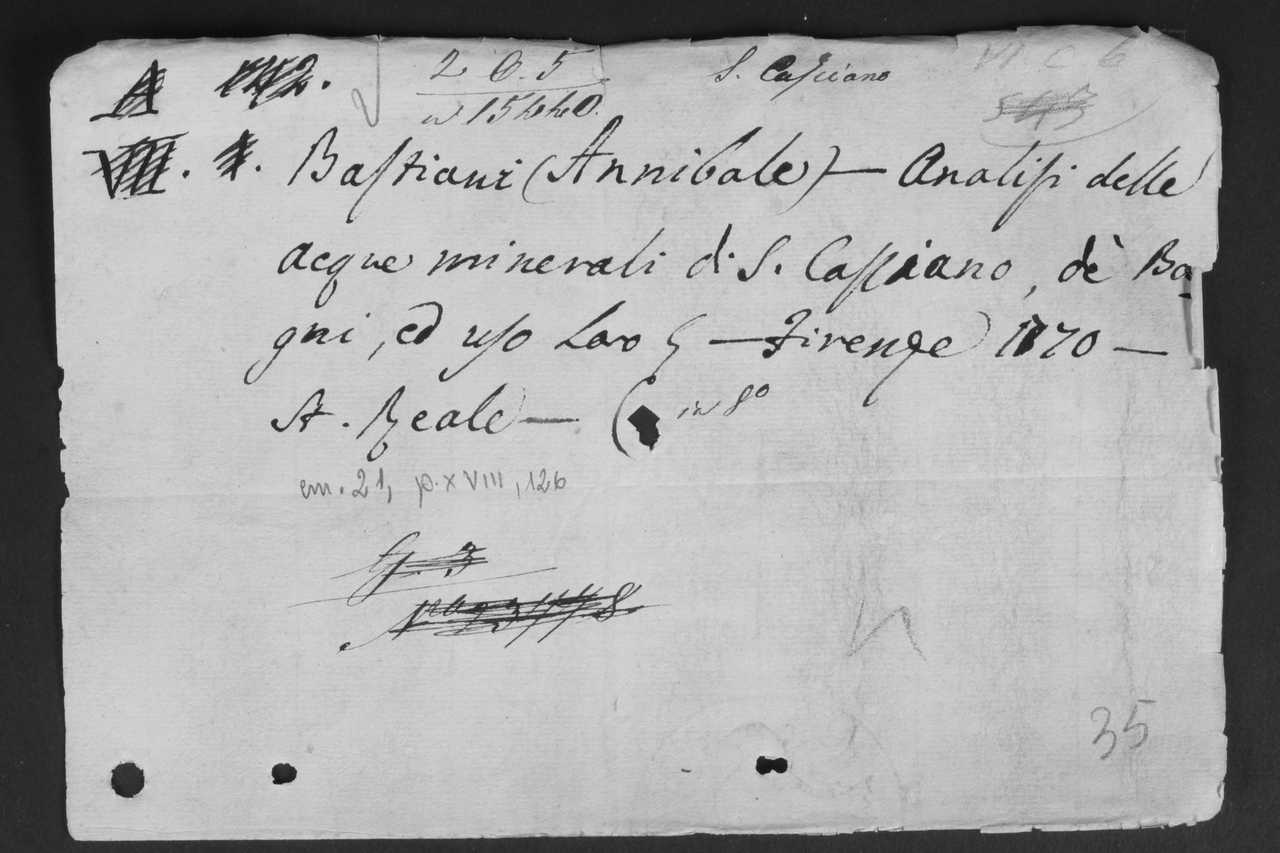 A
2 6. 5
S. Casciano
VI. C 6
w 15440.
543
VIII. Bastiani (Annibale) — Analisi delle
acque minerali di S. Casciano, dè Ba-
gni, ed uso Loro — Firenze 1770 —
St. Reale — ( in 8º
em. 21, p. XVIII, 126
35